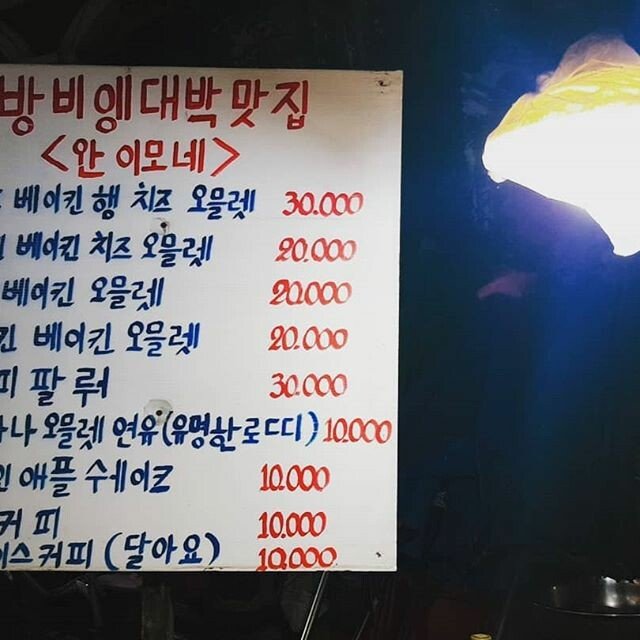 방비엥대박맛집
<안 이모네>
베이킨 행 치즈 오믈렛 30.000
베이킨 치즈 오믈렛 20.000
베이킨 오믈렛 20.000
킨 베이킨 오믈렛 20.000
피 팔 뤄 30.000
나나 오믈렛 연유(유명한로띠) 10.000
인 애플 수웨이Z 10.000
커 피 10.000
이스커피 (달아요) 10.000